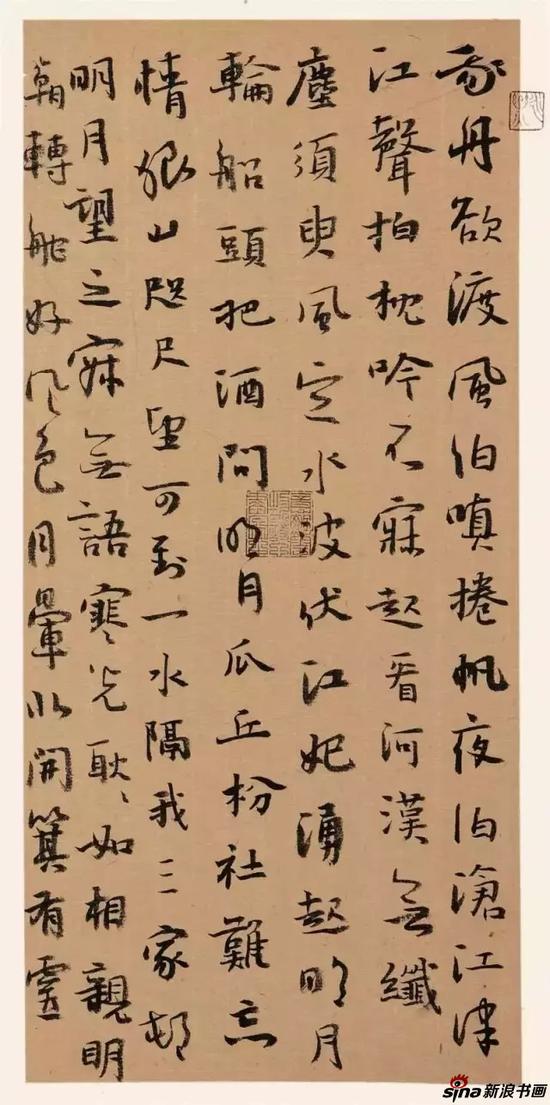 我舟欲渡風伯嗔捲帆夜泊滄江津
江聲拍枕吟不寐起看河漢無纖
塵須臾風定水波伏江妃湧起明月
輪船頭把酒問明月瓜丘枌社難忘
情狼山咫尺望可到一水隔我三家邨
明月望之寂無語寒光耿〻如相親明
朝轉舵好風色月暈北開箕有靈
sina新浪书画